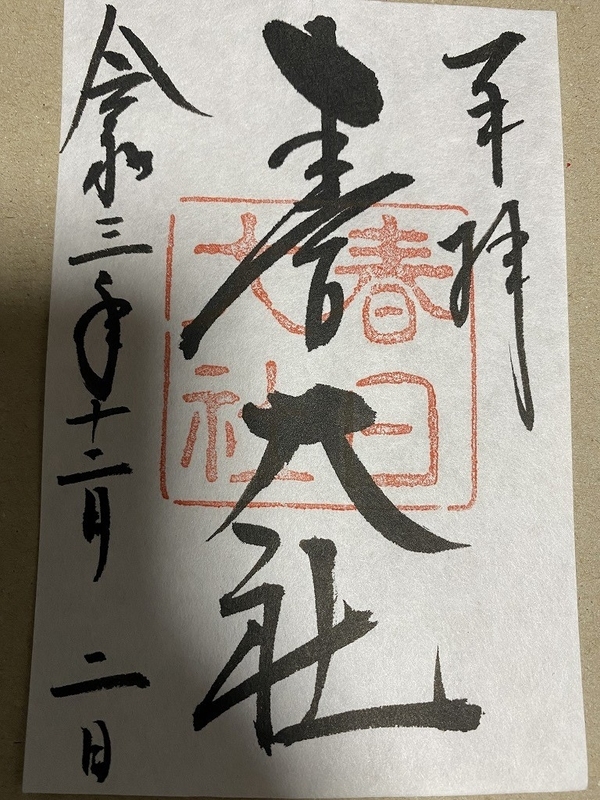 奉拝
春日大社
春日
大社
令和三年十二月二日